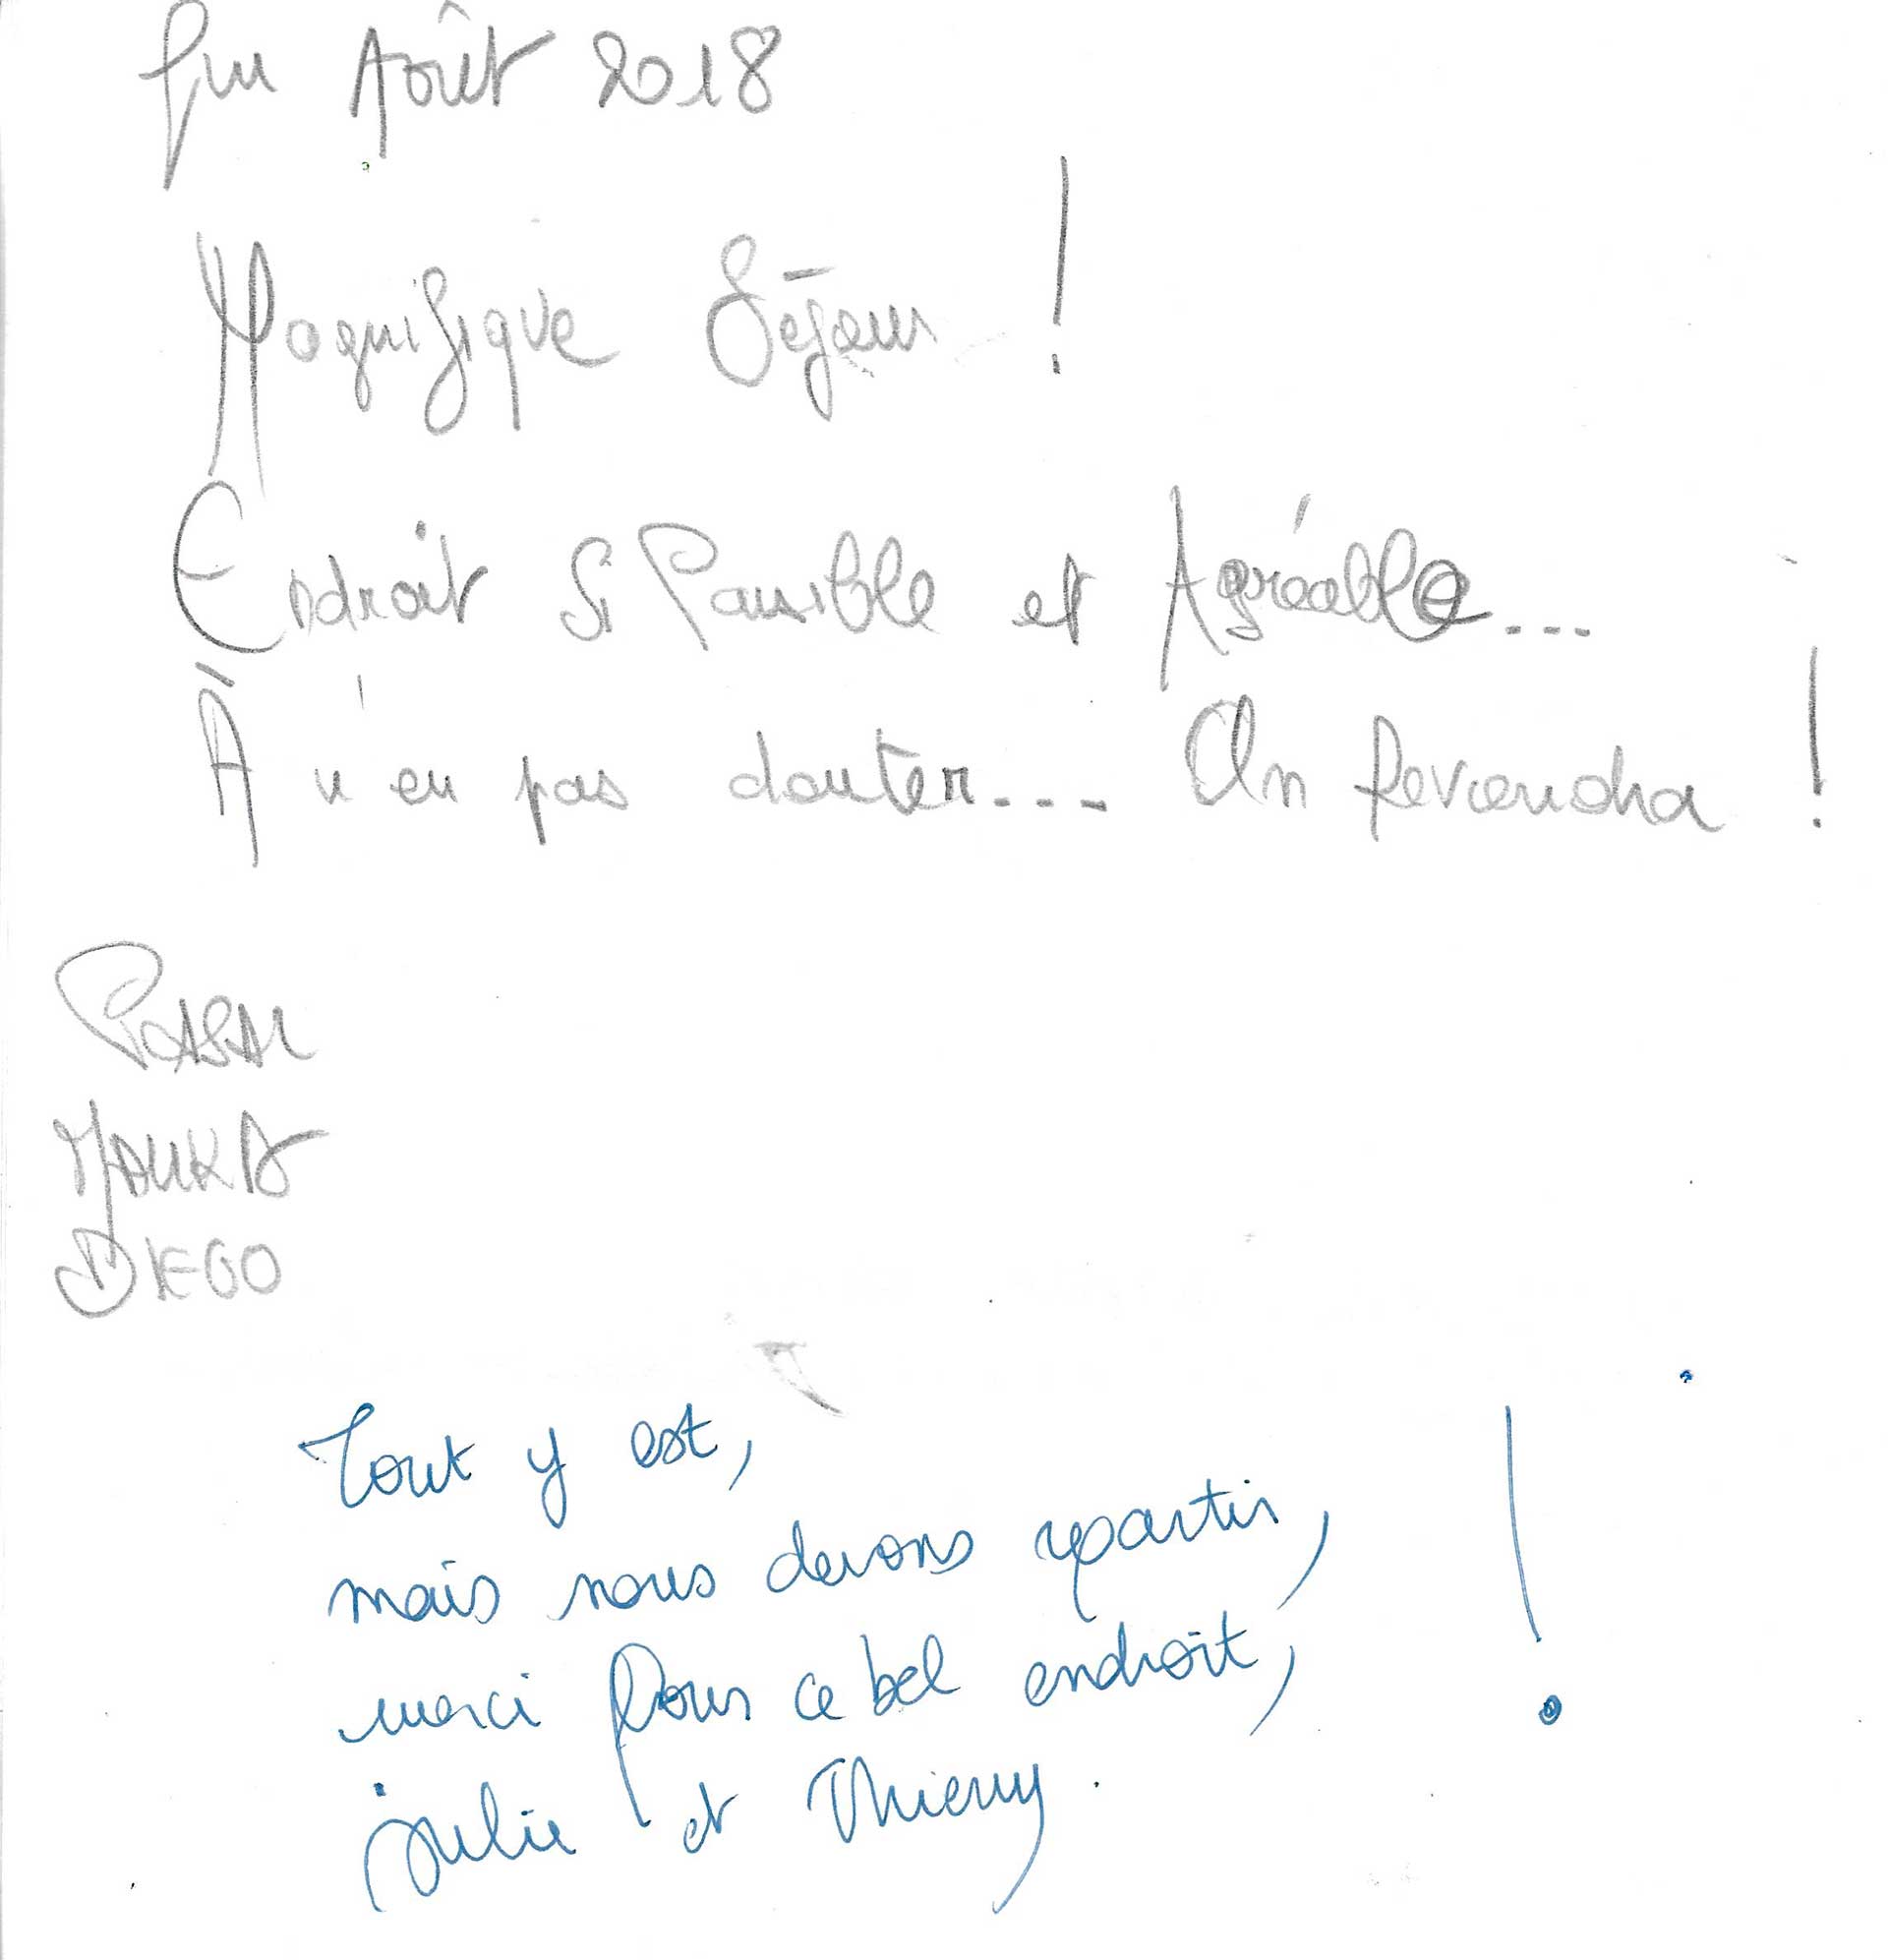 fin Août 2018
Magnifique Séjour !
Endroit Si Paisible et Agréable...
À n'en pas douter.... On Reviendra !
DIEGO
Tout y est,
mais nous devons repartir,
merci pour ce bel endroit, !
Julie et Thierry.